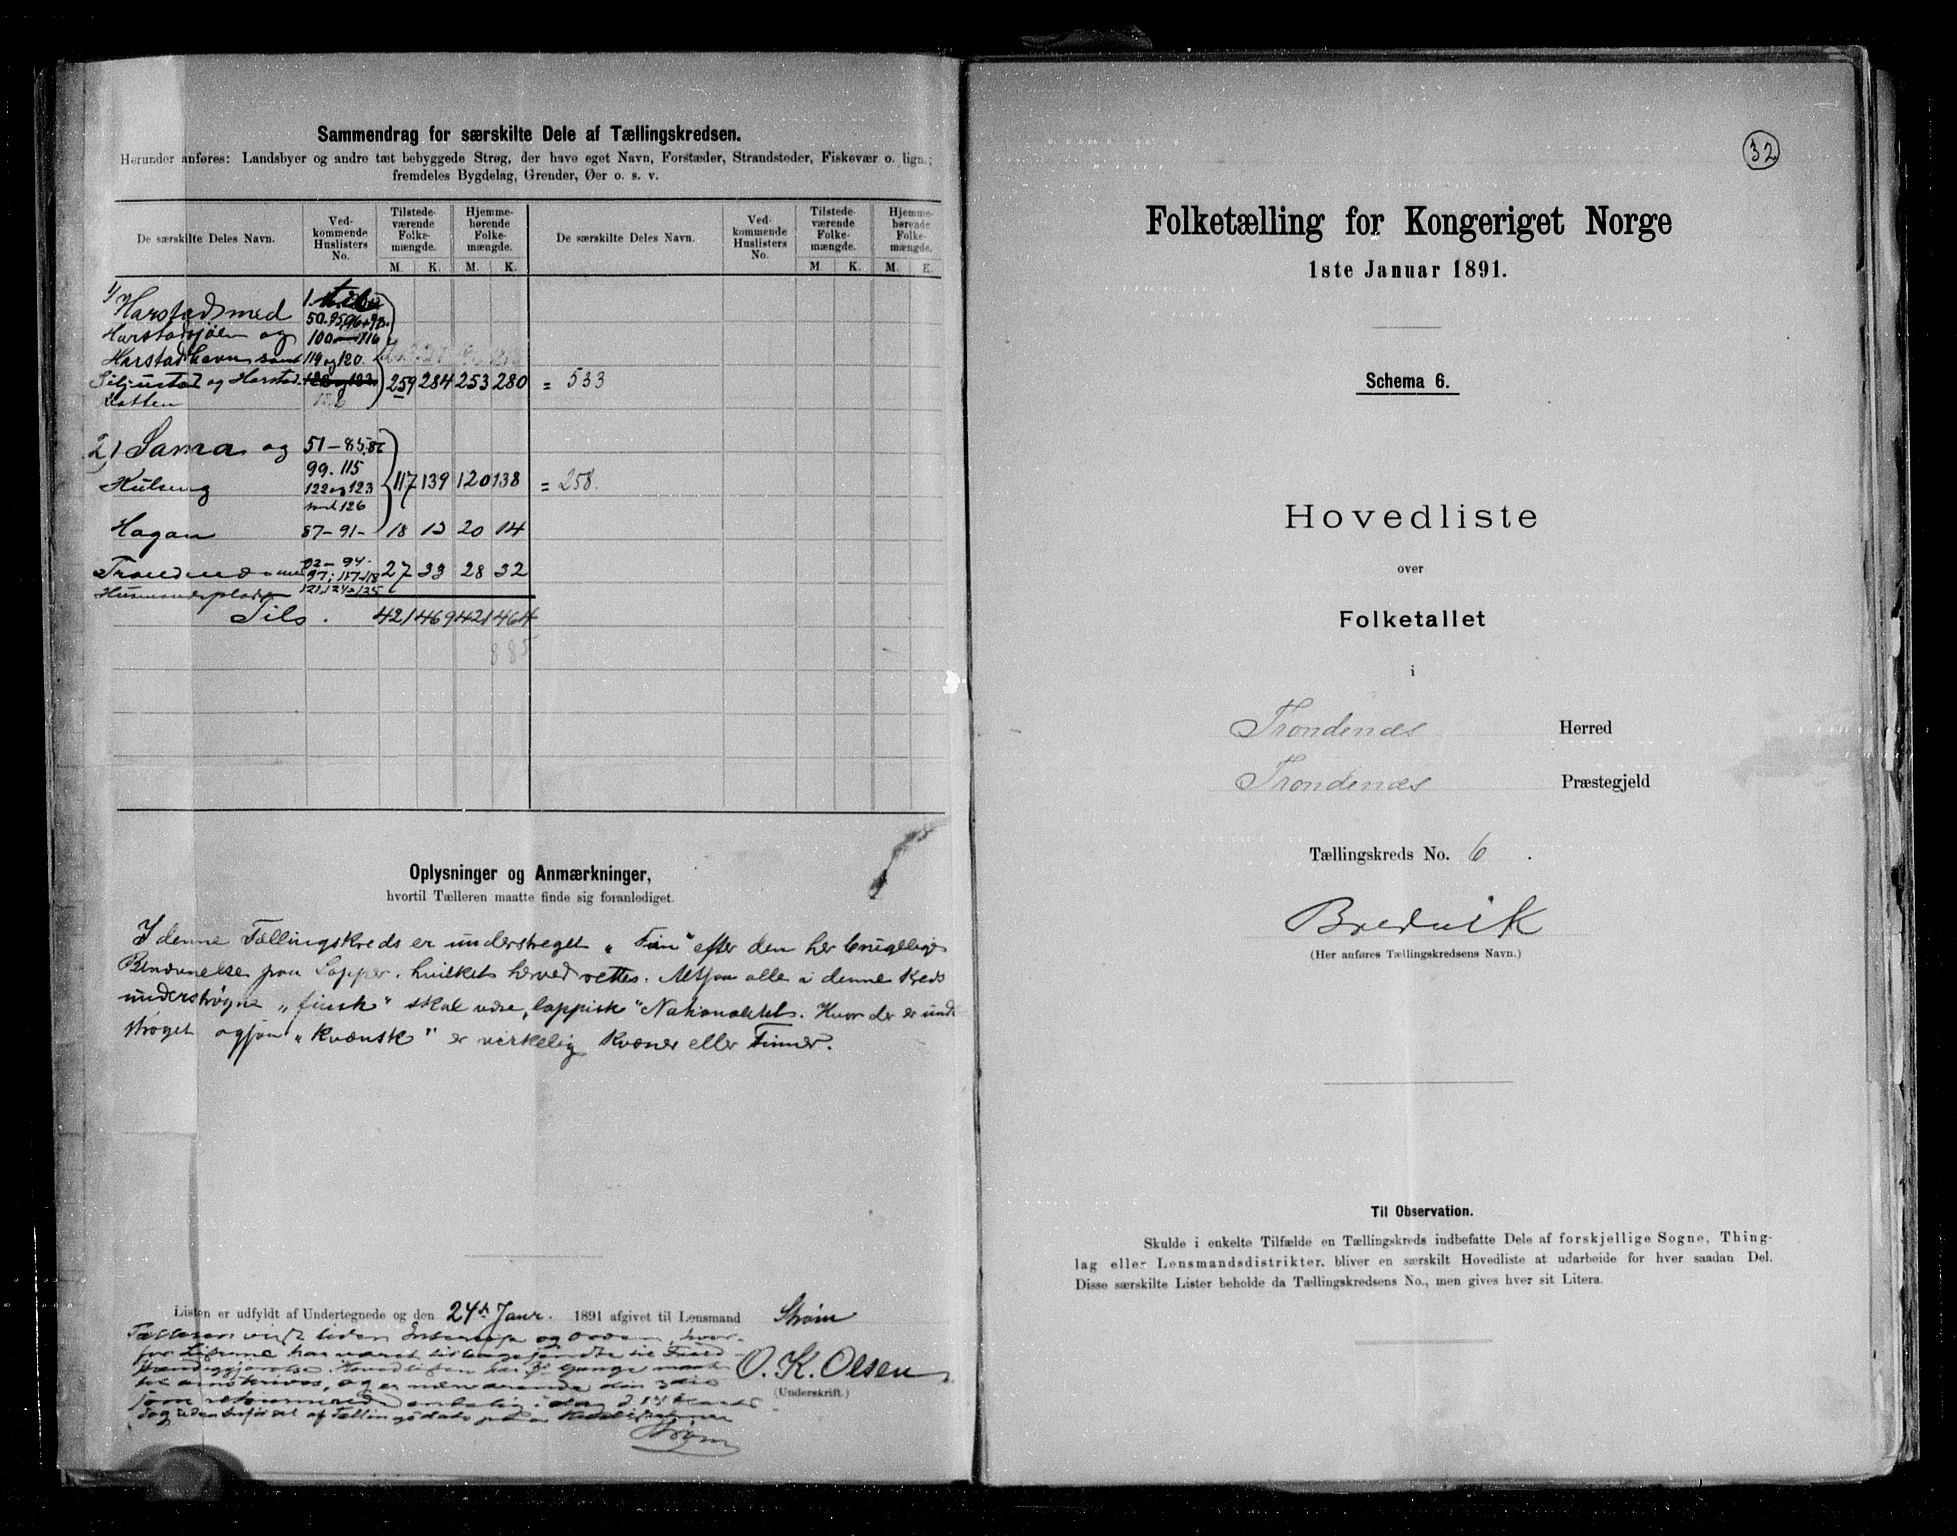 Sammendrag for særskilte Dele af Tællingskredsen.
Herunder anføres: Landsbyer og andre tæt bebyggede Strøg, der have eget Navn, Forstæder, Strandsteder, Fiskevær o. lign.;
fremdeles Bygdelag, Grender, Øer o. s. v.
De særskilte Deles Navn. Vedkommende Huslisters No. Tilstedeværende Folkemængde. Hjemmehørende Folkemængde. De særskilte Deles Navn. Vedkommende Huslisters No. Tilstedeværende Folkemængde. Hjemmehørende Folkemængde.
M. K. M. K. M. K. M. K.
1) Harstad med 1 til
Harstadsjøen og 50. 95, 96 + 98.
100 — 116
Harstadhavn samt 119 og 120.
Siljustad og Harstad 259 284 253 280 = 533
Botten
2) Sama og 51 — 85, 86
99. 115
Kulseng 122 og 123 117 139 120 138 = 258.
samt 126
Hagan 87 — 91 — 18 13 20 14
Trondenæs med 92 — 94. 27 33 28 32
97; 117 + 118
Husmandsplads 121, 124 + 125
Tils. 421 469 421 464
885
Oplysninger og Anmærkninger,
hvortil Tælleren maatte finde sig foranlediget.
I denne Tællingskreds er understreget „Fin“ efter den her brugelige
Benævnelse paa Lapper, hvilket herved rettes. Altsaa alle i denne Kreds
understrøgne „finsk“ skal være „lappisk“ Nationalitet. Hvor der er unde
strøget ogsaa „kvænsk“ er virkelig Kvæner eller Finner.
Listen er udfyldt af Undertegnede og den 24de Janr. 1891 afgivet til Lensmand Strøm
O. K. Olsen
(Underskrift.)
Strøm
32
Folketælling for Kongeriget Norge
1ste Januar 1891.
Schema 6.
Hovedliste
over
Folketallet
i
Trondenæs Herred
Trondenæs Præstegjeld
Tællingskreds No. 6.
Bredvik
(Her anføres Tællingskredsens Navn.)
Til Observation.
Skulde i enkelte Tilfælde en Tællingskreds indbefatte Dele af forskjellige Sogne, Thing-
lag eller Lensmandsdistrikter, bliver en særskilt Hovedliste at udarbeide for hver saadan Del.
Disse særskilte Lister beholde da Tællingskredsens No., men gives hver sit Litera.